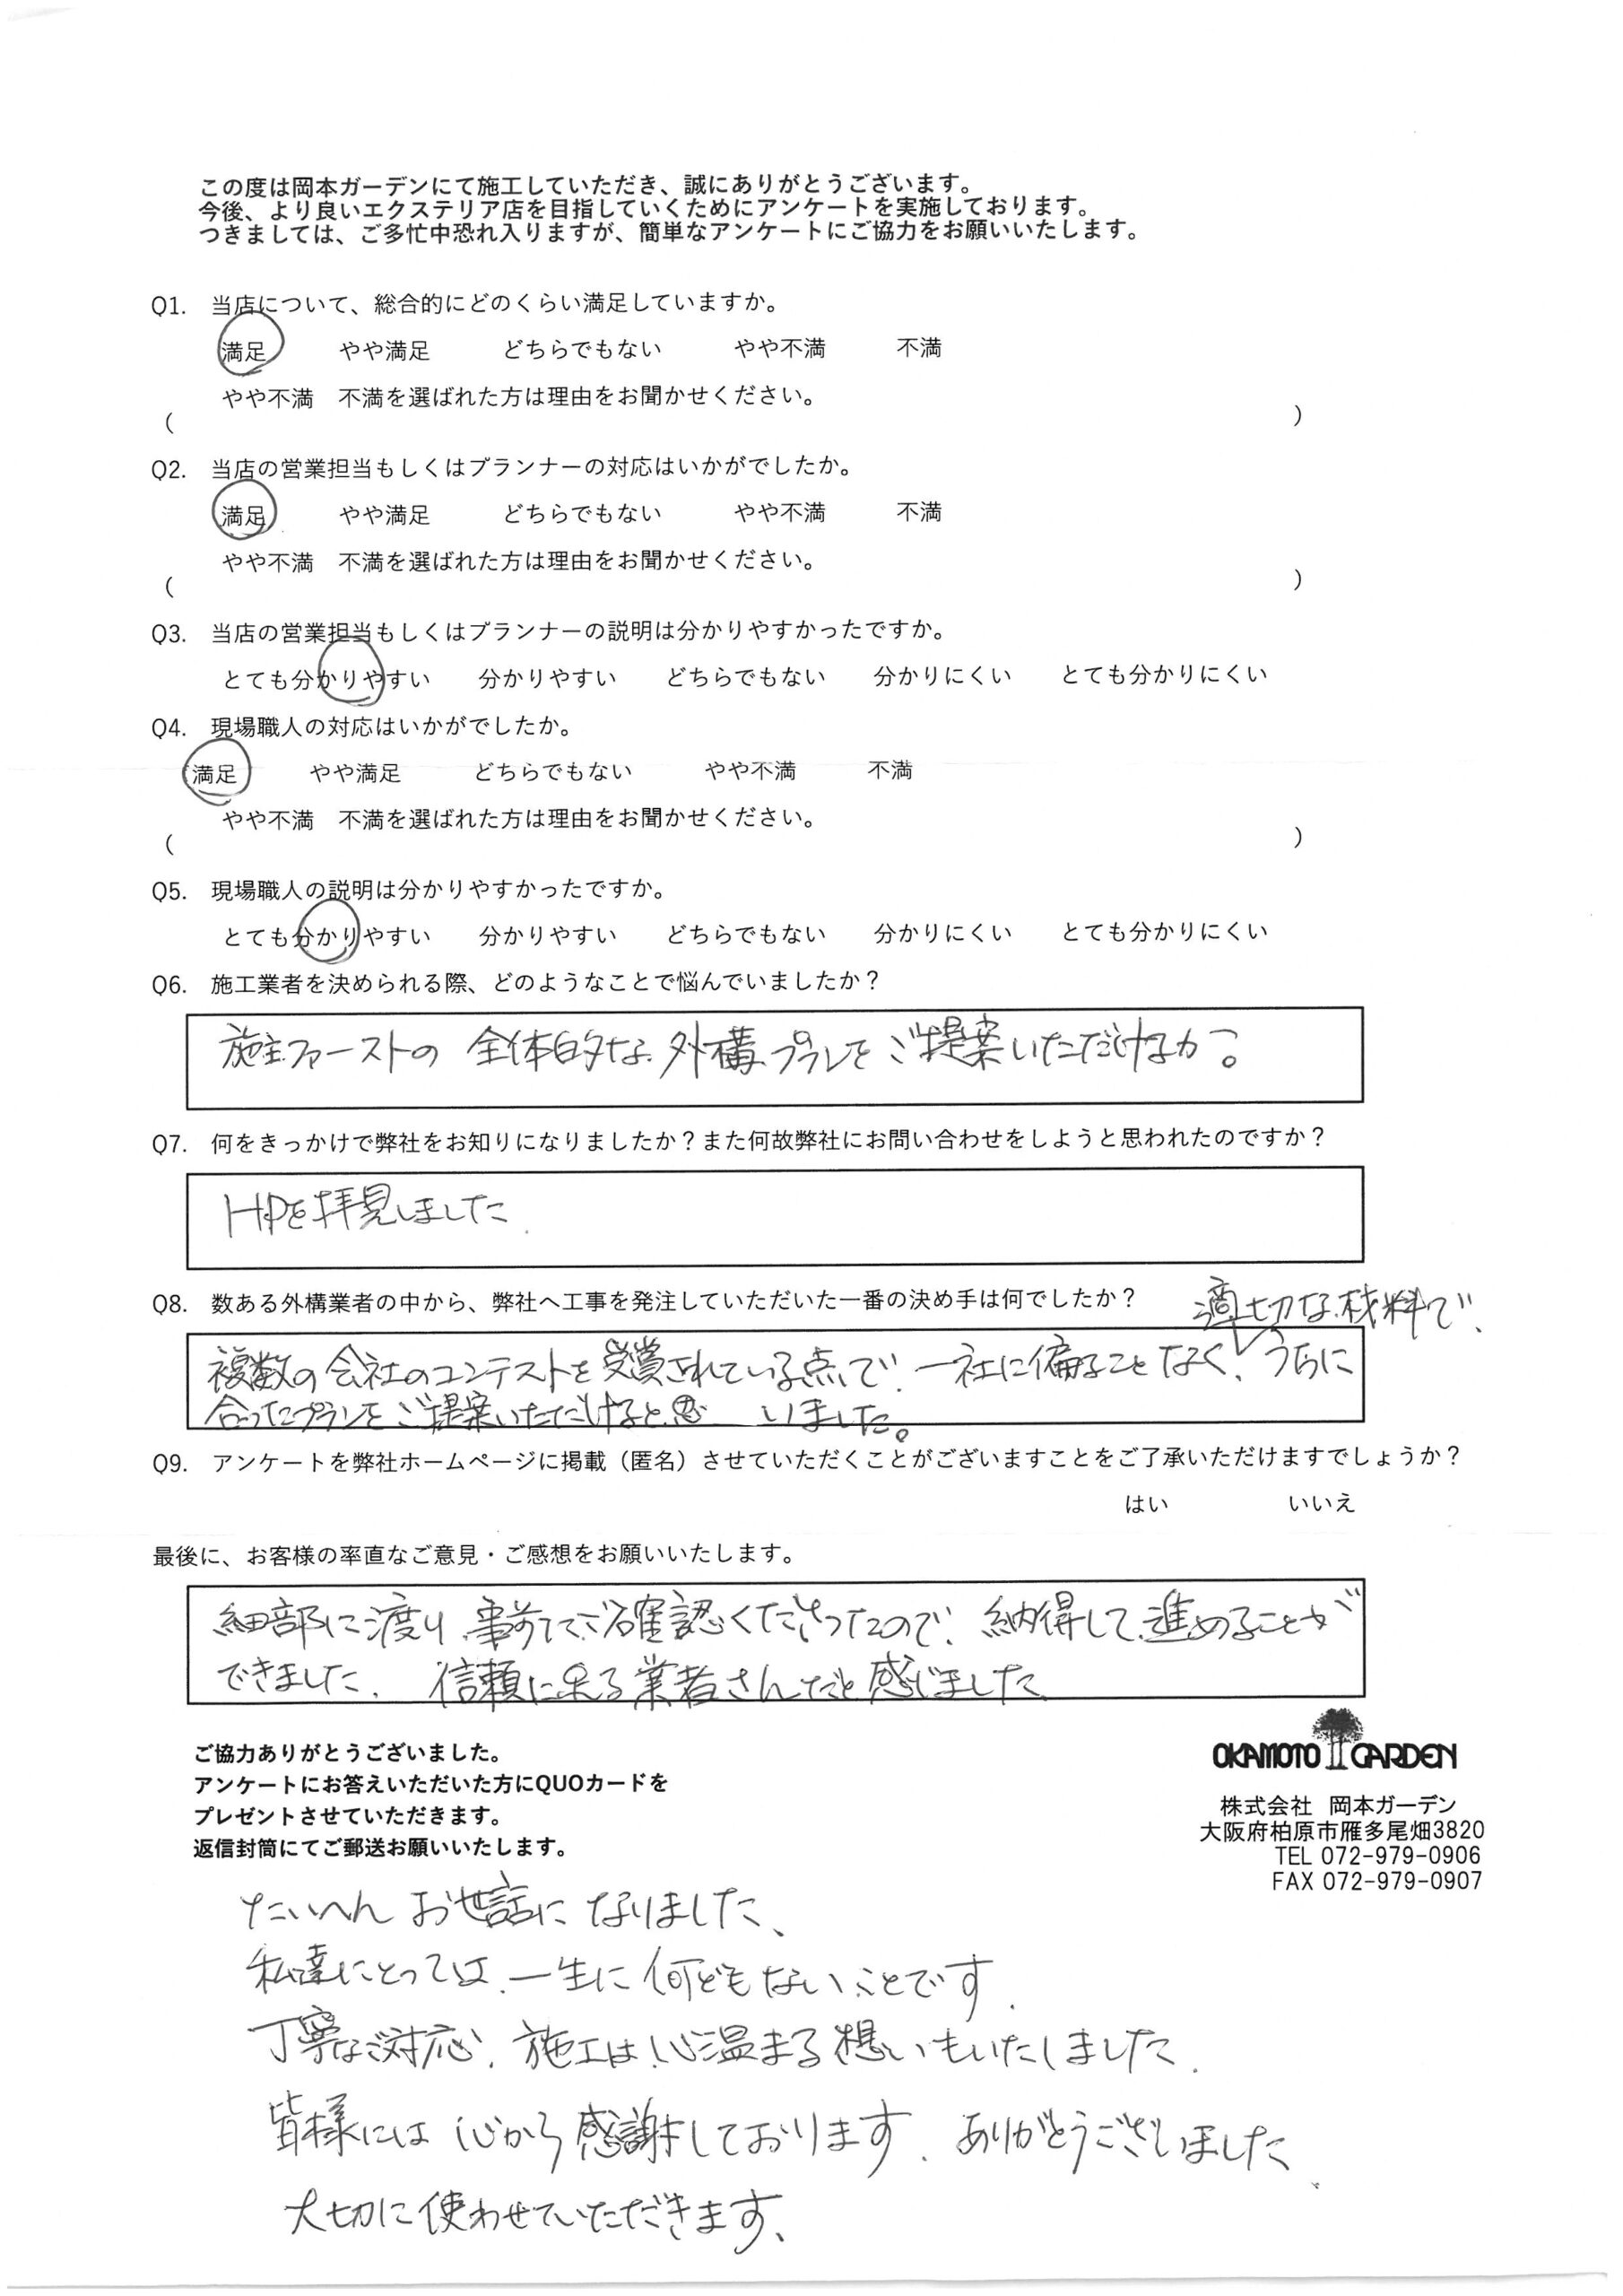 この度は岡本ガーデンにて施工していただき、誠にありがとうございます。
今後、より良いエクステリア店を目指していくためにアンケートを実施しております。
つきましては、ご多忙中恐れ入りますが、簡単なアンケートにご協力をお願いいたします。
Q1. 当店について、総合的にどのくらい満足していますか。
満足 やや満足 どちらでもない やや不満 不満
やや不満 不満を選ばれた方は理由をお聞かせください。
( )
Q2. 当店の営業担当もしくはプランナーの対応はいかがでしたか。
満足 やや満足 どちらでもない やや不満 不満
やや不満 不満を選ばれた方は理由をお聞かせください。
( )
Q3. 当店の営業担当もしくはプランナーの説明は分かりやすかったですか。
とても分かりやすい 分かりやすい どちらでもない 分かりにくい とても分かりにくい
Q4. 現場職人の対応はいかがでしたか。
満足 やや満足 どちらでもない やや不満 不満
やや不満 不満を選ばれた方は理由をお聞かせください。
( )
Q5. 現場職人の説明は分かりやすかったですか。
とても分かりやすい 分かりやすい どちらでもない 分かりにくい とても分かりにくい
Q6. 施工業者を決められる際、どのようなことで悩んでいましたか？
施主ファーストの 全体的な外構プランをご提案いただけるか?。
Q7. 何をきっかけで弊社をお知りになりましたか？また何故弊社にお問い合わせをしようと思われたのですか？
HPを拝見しました.
Q8. 数ある外構業者の中から、弊社へ工事を発注していただいた一番の決め手は何でしたか？
適切な材料で、
複数の会社のコンテストを受賞されている点で、一社に偏ることなく、うちに
合ったプランをご提案いただけると思いました。
Q9. アンケートを弊社ホームページに掲載（匿名）させていただくことがございますことをご了承いただけますでしょうか？
はい いいえ
最後に、お客様の率直なご意見・ご感想をお願いいたします。
細部に渡り、事前でご確認くださったので、納得して進めることが
できました、 信頼に足る業者さんだと感じました、
ご協力ありがとうございました。
アンケートにお答えいただいた方にQUOカードを
プレゼントさせていただきます。
返信封筒にてご郵送お願いいたします。
OKAMOTO GARDEN
株式会社 岡本ガーデン
大阪府柏原市雁多尾畑3820
TEL 072-979-0906
FAX 072-979-0907
たいへん お世話に なりました、
私達にとっては、一生に何どもないことです、
丁寧なご対応、施工は心温まる想いもいたしました、
皆様には 心から感謝しております、ありがとうございました、
大切に使わせていただきます、